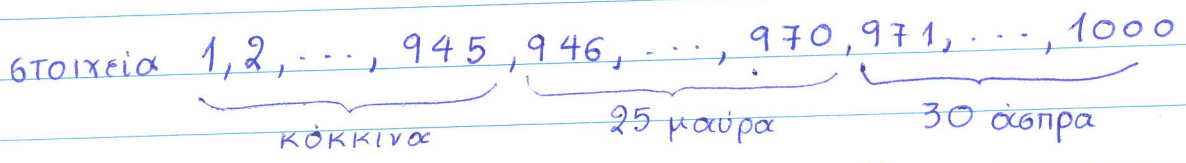 στοιχεία 1,2,..., 945, 946,..., 970, 971,..., 1000
κόκκινα 25 μαύρα 30 άσπρα